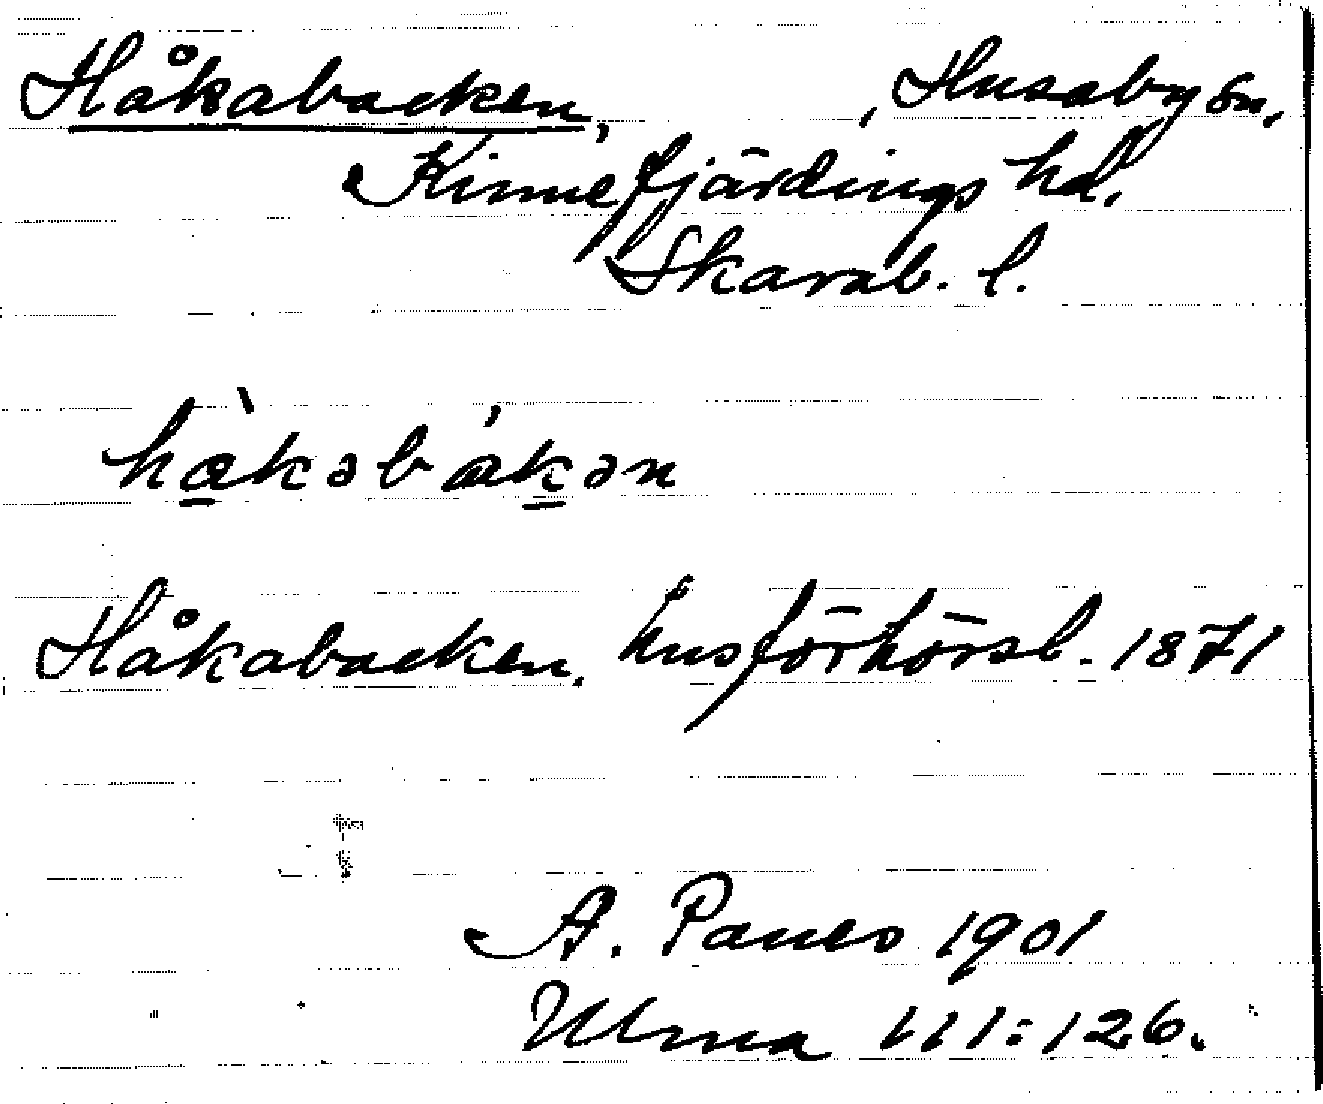 Håkabacken, , Husaby sn,
Kinnefjärdings hd.
Skarab. l.
hàkəbákən
Håkabacken. husförhörsl. 1871
A. Paues 1901
Ulma 111:126.